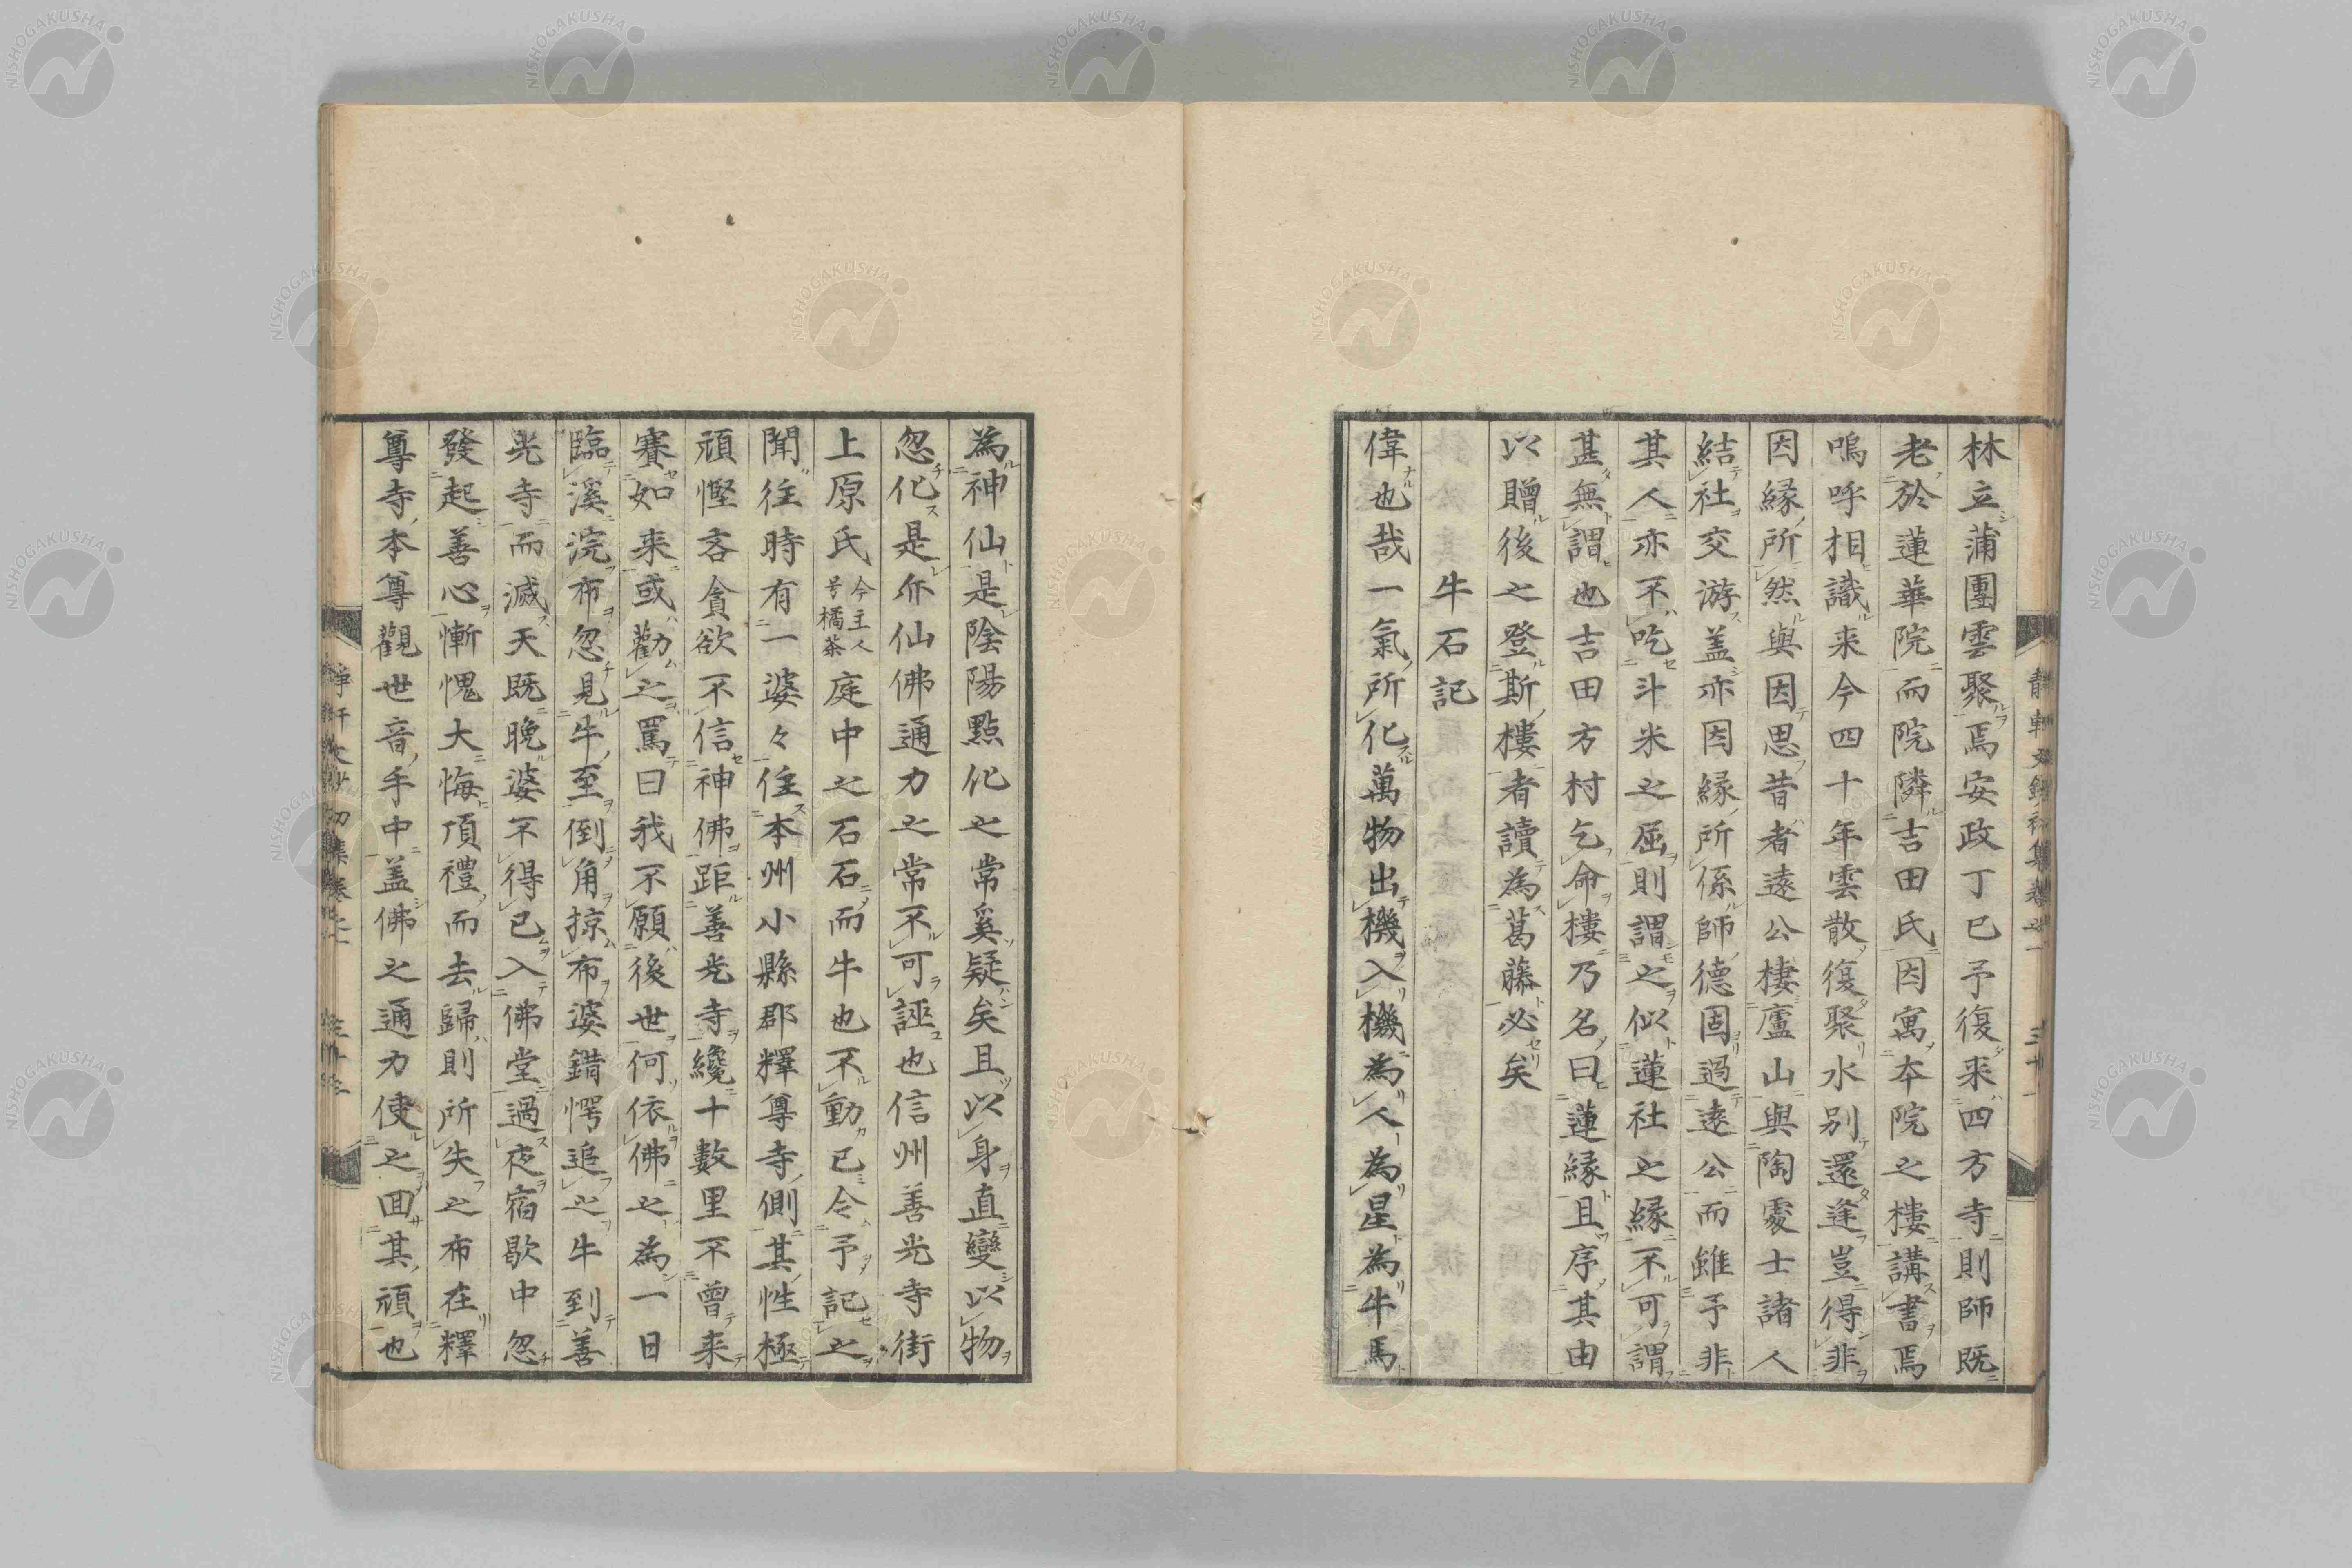 林立蒲團雲聚焉安政丁巳予復来四方寺則師既
老於蓮華院而院隣吉田氏因寓本院之樓講書焉
嗚呼相識来今四十年雲散復聚水別還逢豈得非
因縁所然與因思昔者遠公棲廬山與陶處士諸人
結社交游盖亦因縁所係師德固過遠公而雖予非
其人亦不吃斗米之屈則謂之似蓮社之縁不可謂
甚無謂也吉田方村乞命樓乃名曰蓮縁且序其由
以贈後之登斯樓者讀為葛藤必矣
牛石記
偉也哉一氣所化萬物出機入機為人為星為牛馬
為神仙是陰陽點化之常奚疑矣且以身直變以物
忽化是亦仙佛通力之常不可誣也信州善光寺街
上原氏今主人号橘茶庭中之石石而牛也不動已令予記之
聞徃時有一婆々住本州小縣郡釋尊寺側其性極
頑慳吝貪欲不信神佛距善光寺纔十數里不曾来
賽如来或勸之罵曰我不願後世何依佛之為一日
臨溪浣布忽見牛至倒角掠布婆錯愕追之牛到善
光寺而滅天既晩婆不得已入佛堂過夜宿歇中忽
發起善心慚愧大悔頂禮而去歸則所失之布在釋
尊寺本尊觀世音手中盖佛之通力使之囬其頑也